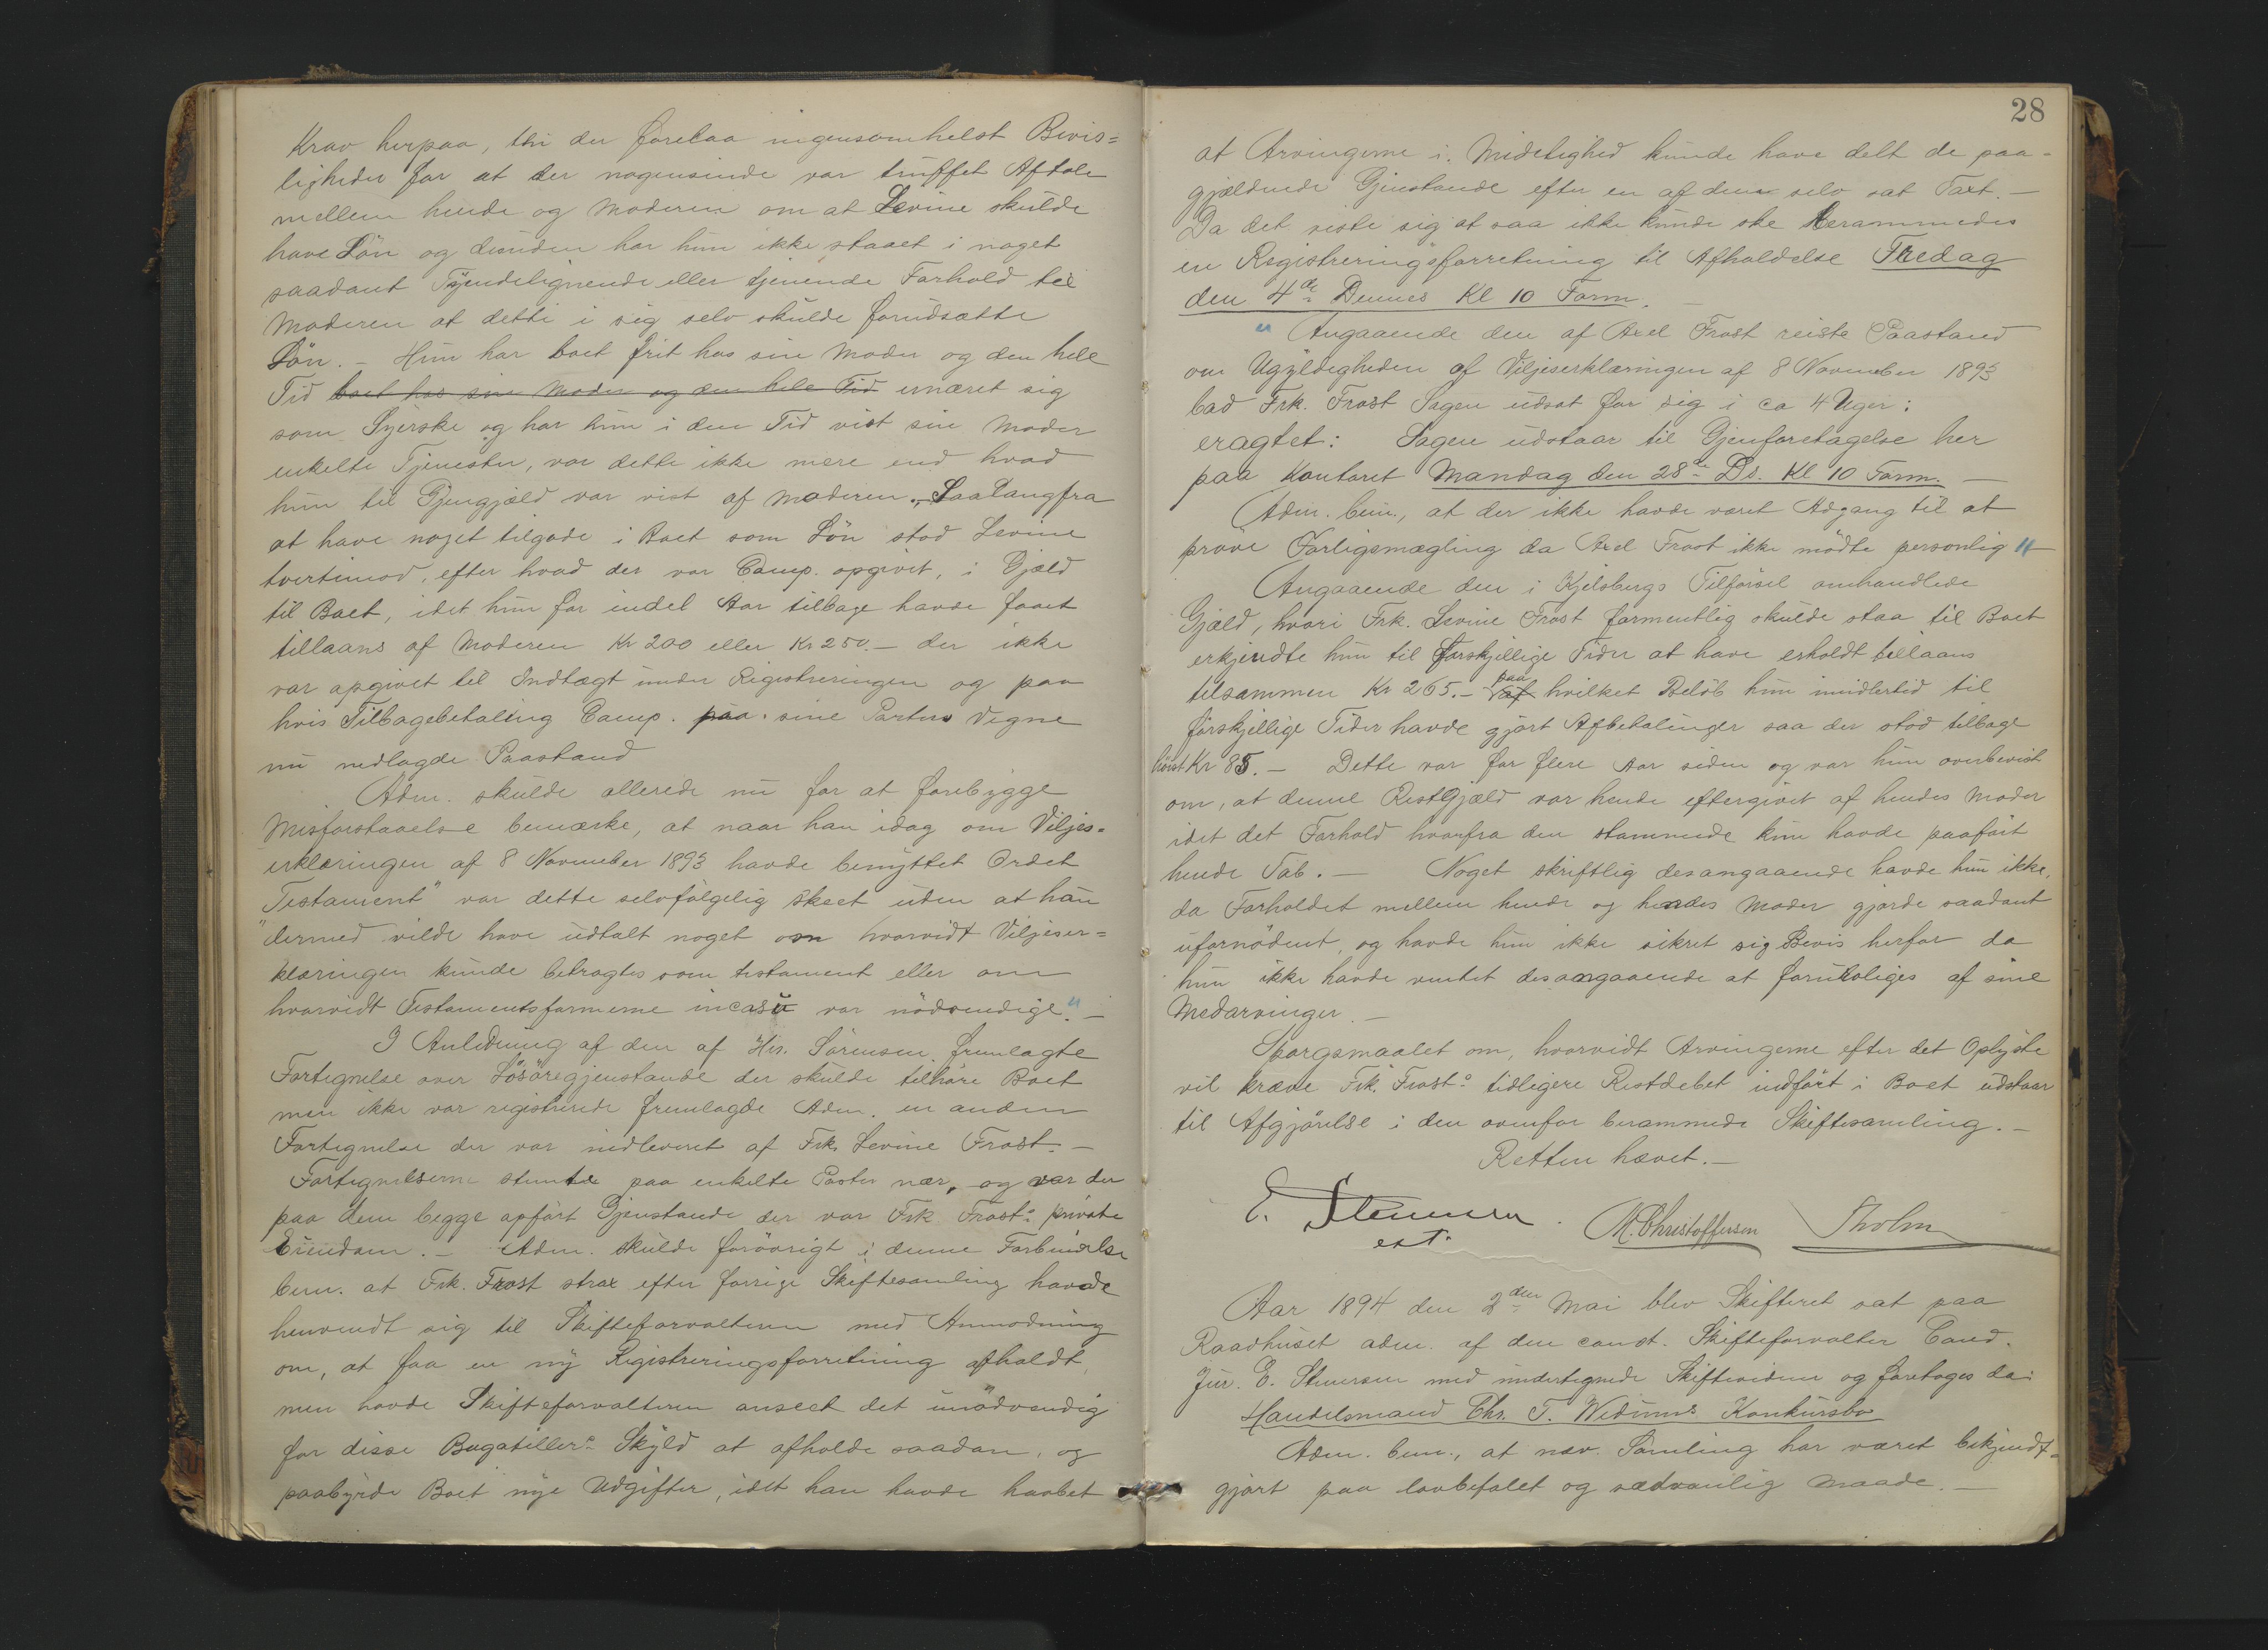 Krav herpaa, thi der forelaa ingensomhelst Bevis=
ligheder for at der nogensinde var truffet Aftale
mellem hende og Moderen om at Levine skulde
have Løn og desuden har hun ikke staaet i noget
saadant Tyendelignende eller tjenende Forhold til
Moderen at dette i sig selv skulde forudsætte
Løn. – Hun har boet frit hos sin Moder og den hele
Tid boet hos sin Moder og den hele Tid ernæret sig
som Syerske og har hun i den Tid vist sin Moder
enkelte Tjenester, var dette ikke mere end hvad
hun til Gjengjæld var vist af Moderen. Saalangfra
at have noget tilgode i Boet som Løn stod Levine
tvertimod, efter hvad der var Comp. opgivet, i Gjæld
til Boet, idet hun for endel Aar tilbage havde faaet
tillaans af Moderen Kr 200 eller Kr 250.– der ikke
var opgivet til Indtægt under Registreringen og paa
hvis Tilbagebetaling Comp. paa sine Parters Vegne
nu nedlagde Paastand
Adm. skulde allerede nu for at forebygge
Misforstaaelse bemærke, at naar han idag om Viljes=
erklæringen af 8 November 1893 havde benyttet Ordet
"Testament" var dette selvfølgelig skeet uden at han
dermed vilde have udtalt noget om hvorvidt Viljeser=
klæringen kunde betragtes som testament eller om
hvorvidt Testamentsformerne incasu var nødvendige". –
I Anledning af den af Hr. Sørensen fremlagte
Fortegnelse over Løsøregjenstande der skulde tilhøre Boet
men ikke var registrerede fremlagde Adm. en anden
Fortegnelse der var indleveret af Frk. Levine Frost. –
Fortegnelserne stemte paa enkelte Poster nær, og var der
paa dem begge opført Gjenstande der var Frk Frosts private
Eiendom. – Adm. skulde forøvrigt i denne Forbindelse
bem. at Frk. Frost strax efter forrige Skiftesamling havde
henvendt sig til Skifteforvalteren med Anmodning
om, at faa en ny Registreringsforretning afholdt,
men havde Skifteforvalteren anseet det unødvendig
for disse Bagatellers Skyld at afholde saadan, og
paabyrde Boet nye Udgifter, idet han havde haabet
28
at Arvingerne i Mindelighed kunde have delt de paa-
gjældende Gjenstande efter en af dem selv sat Taxt. –
Da det viste sig at saa ikke kunde ske berammedes
en Registreringsforretning til Afholdelse Fredag
den 4de Dennes Kl 10 Form. –
" Angaaende den af Axel Frost reiste Paastand
om Ugyldigheden af Viljeserklæringen af 8 November 1893
bad Frk. Frost Sagen udsat for sig i ca 4 Uger:
eragtet: Sagen udstaar til Gjenforetagelse her
paa Kontoret Mandag den 28de Ds. Kl 10 Form. –
Adm. bem., at der ikke havde været Adgang til at
prøve Forligsmægling da Axel Frost ikke mødte personlig "–
Angaaende den i Kjelsbergs Tilførsel omhandlede
Gjæld, hvori Frk. Levine Frost formentlig skulde staa til Boet
erkjendte hun til forskjellige Tider at have erholdt tillaans
tilsammen Kr 265.– paa af hvilket Beløb hun imidlertid til
forskjellige Tider havde gjort Afbetalinger saa der stod tilbage
Kr 85. – Dette var for flere Aar siden og var hun overbevist
om, at denne Restgjæld var hende eftergivet af hendes Moder
idet det Forhold hvorfra den stammede kun havde paaført
hende Tab. – Noget skriftlig desangaaende havde hun ikke,
da Forholdet mellem hende og hendes Moder gjorde saadant
ufornødent, og havde hun ikke sikret sig Bevis herfor da
hun ikke havde ventet desangaaende at foruroliges af sine
Medarvinger. –
Spørgsmaalet om, hvorvidt Arvingerne efter det Oplyste
vil kræve Frk. Frosts tidligere Restdebet indført i Boet udstaar
til Afgjørelse i den ovenfor berammede Skiftesamling. –
Retten hævet. –
E. Stenersen
cst.
M. Christoffersen Tholm
Aar 1894 den 2den Mai blev Skifteret sat paa
Raadhuset adm. af den const. Skifteforvalter Cand.
Jur. E. Stenersen med undertegnede Skiftevidner og foretoges da:
Handelsmand Chr. T. Widums Konkursbo
Adm. bem., at næv. Samling har været bekjendt=
gjort paa lovbefalet og sædvanlig Maade. –